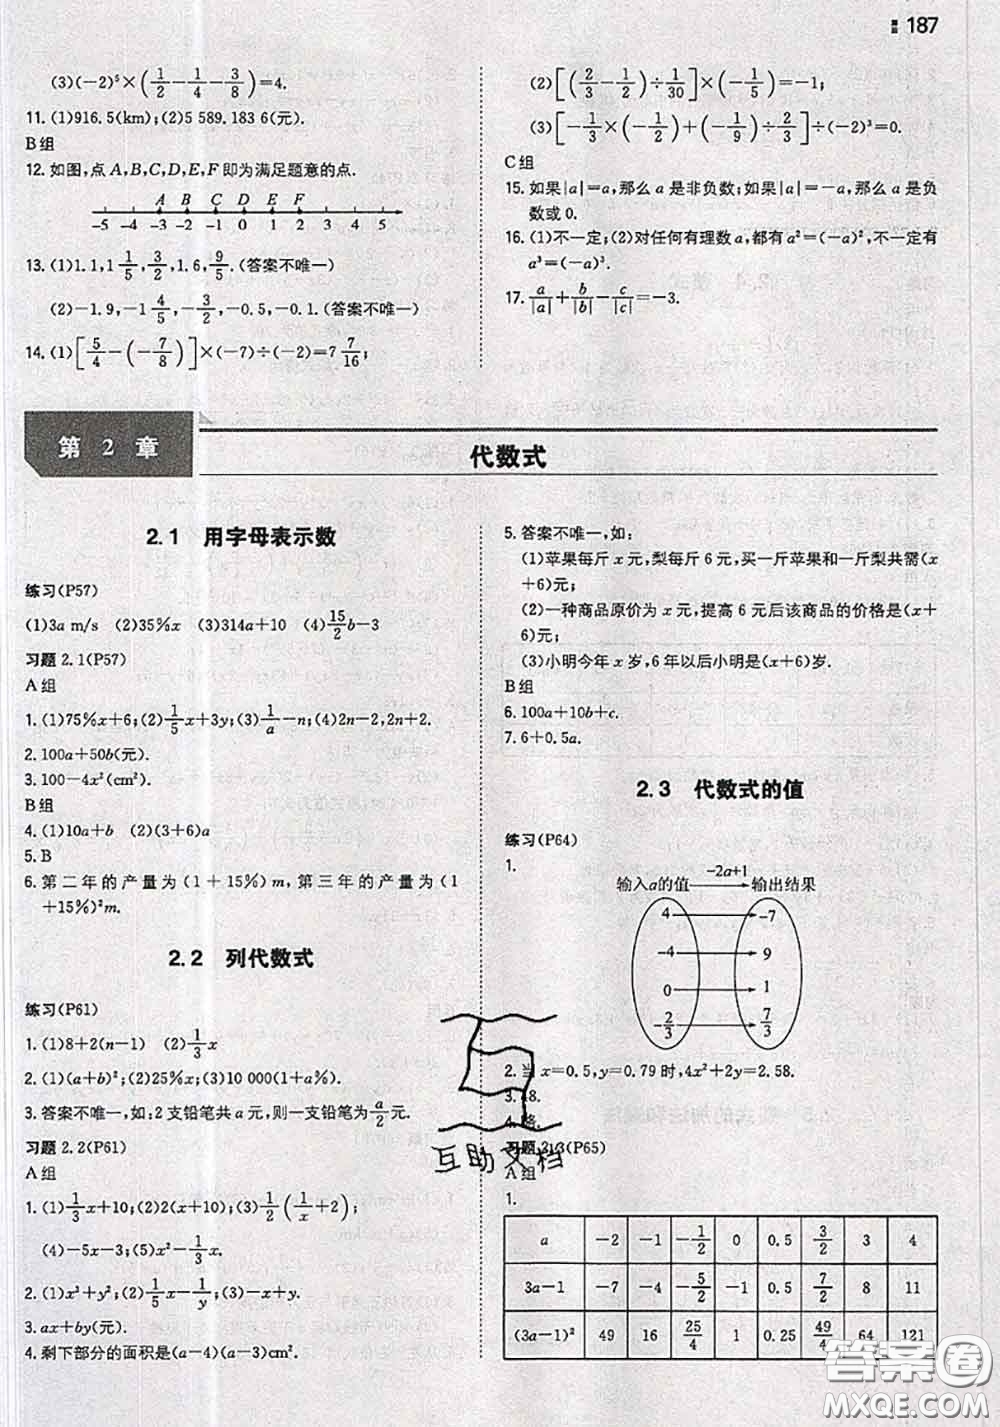 187
(3)(-2)⁵×(1/2-1/4-3/8)=4.
11. (1)916.5(km);(2)5 589.183 6(元).
B组
12. 如图,点A,B,C,D,E,F即为满足题意的点.
A B C D E F
-5 -4 -3 -2 -1 0 1 2 3 4 5
13. (1)1.1,1 1/5,3/2,1.6,9/5.(答案不唯一)
(2)-1.9,-1 4/5,-3/2,-0.5,-0.1.(答案不唯一)
14. (1)[5/4-(-7/8)]×(-7)÷(-2)=7 7/16;
(2)[(2/3-1/2)÷1/30]×(-1/5)=-1;
(3)[-1/3×(-1/2)+(-1/9)÷2/3]÷(-2)³=0.
C组
15. 如果|a|=a,那么a是非负数;如果|a|=-a,那么a是负
数或0.
16. (1)不一定;(2)对任何有理数a,都有a²=(-a)²,不一定有
a³=(-a)³.
17. a/|a|+b/|b|+c/|c|=-3.
第 2 章
代数式
2.1 用字母表示数
练习(P57)
(1)3a m/s (2)35%x (3)314a+10 (4)15/2b-3
习题2.1(P57)
A组
1. (1)75%x+6;(2)1/5x+3y;(3)1/a-n;(4)2n-2,2n+2.
2. 100a+50b(元).
3. 100-4x²(cm²).
B组
4. (1)10a+b (2)(3+6)a
5. B
6. 第二年的产量为(1+15%)m,第三年的产量为(1
+15%)²m.
2.2 列代数式
练习(P61)
1. (1)8+2(n-1) (2)1/3x
2. (1)(a+b)²;(2)25%x;(3)10 000(1+2x%)
3. 答案不唯一,如:2支铅笔共a元,则一支铅笔a/2元.
习题2.2(P61)
A组
1. (1)1/3x+10;(2)2(x+10);(3)1/2(1/x+2);
(4)-5x-3;(5)x²-1/3x.
2. (1)x²+y²;(2)1/5x-1/y;(3)-x+y.
3. ax+by(元).
4. 剩下部分的面积是(a-4)(a-3)cm².
5. 答案不唯一,如:
(1)苹果每斤x元,梨每斤6元,买一斤苹果和一斤梨共需(x
+6)元;
(2)一种商品原价为x元,提高6元后该商品的价格是(x+
6)元;
(3)小明今年x岁,6年以后小明是(x+6)岁.
B组
6. 100a+10b+c.
7. 6+0.5a.
2.3 代数式的值
练习(P64)
1.
输入a的值 -2a+1 输出结果
4 -7
-4 9
0 1
-2/3 7/3
2. 当x=0.5,y=0.79时,4x²+2y=2.58.
3. 48.
4. 略.
习题2.3(P65)
A组
1.
a -2 -1 -1/2 0 0.5 3/2 3 4
3a-1 -7 -4 -5/2 -1 0.5 7/2 8 11
(3a-1)² 49 16 25/4 1 0.25 49/4 64 121
互助文档
答案圈
MXQE.COM